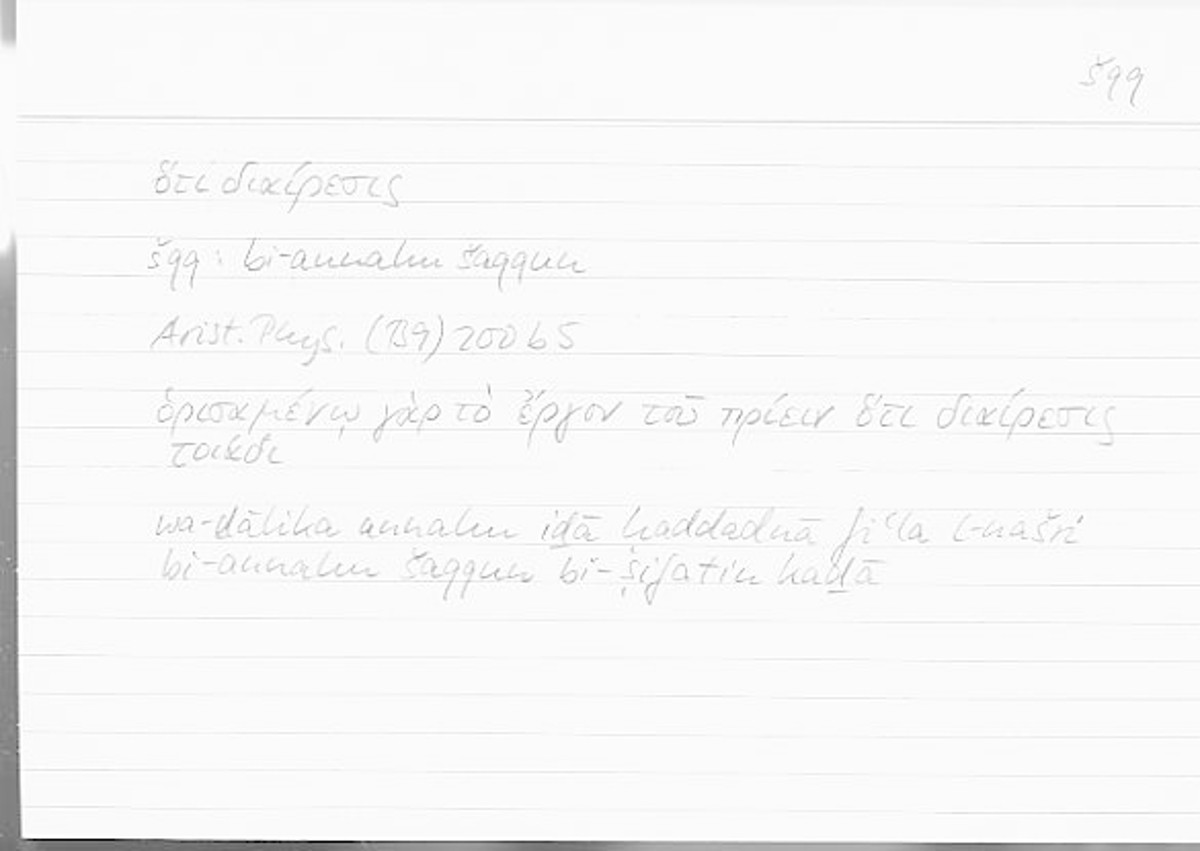 šqq
ὅτι διαίρεσις
šqq: bi-annahu šaqqun
Arist. Phys. (B9) 200 b 5
ὁρισαμένῳ γὰρ τὸ ἔργον τοῦ πρίειν ὅτι διαίρεσις
τοιάδι
wa-ḏālika annahu iḏā ḥaddadnā fiʿla l-našri
bi-annahu šaqqun bi-ṣifatin kaḏā